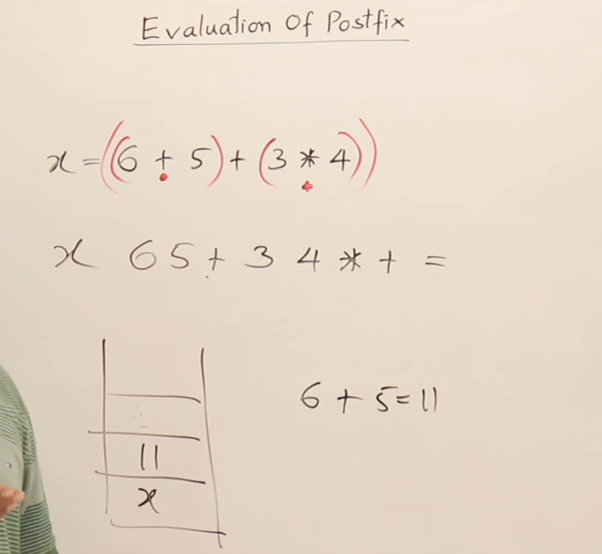 Evaluation Of Postfix
x = ((6 + 5) + (3 * 4))
x 6 5 + 3 4 * + =
6 + 5 = 11
11
x